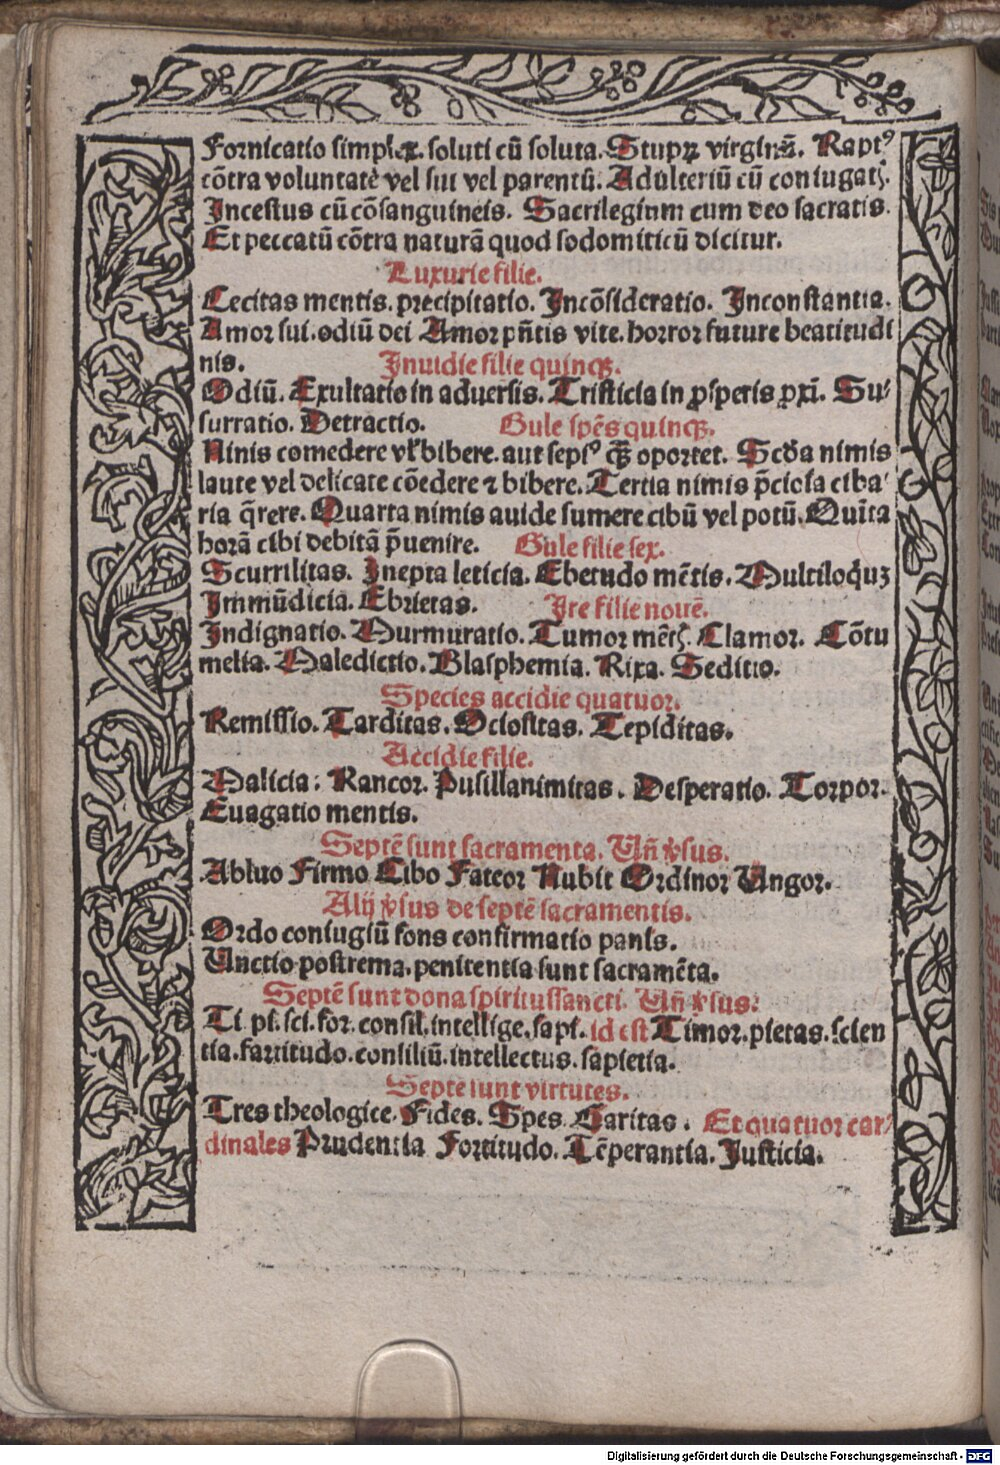 Fornicatio simplex. soluti cū soluta. Stupꝝ virginū. Raptꝰ
cōtra voluntatē vel sui vel parentū. Adulteriū cū coniugatꝭ.
Incestus cū cōsanguineis. Sacrilegium cum deo sacratis.
Et peccatū cōtra naturā quod sodomiticū dicitur.
Luxurie filie.
Cecitas mentis. precipitatio. Incōsideratio. Inconstantia.
Amor sui. odiū dei Amor pñtis vite. horror future beatitudi
nis. Inuidie filie quinqꝫ.
Odiū. Exultatio in aduersis. Tristicia in ꝓsperis ꝓxi. Su⸗
surratio. Detractio. Gule spēs quinqꝫ.
Nimis comedere vł bibere. aut sepiꝰ qꝫ oportet. Scd̄a nimis
laute vel delicate cōedere ⁊ bibere. Tertia nimis p̄ciosa ciba⸗
ria q̄rere. Quarta nimis auide sumere cibū vel potū. Quīta
horā cibi debitā p̄uenire. Gule filie sex.
Scurrilitas. Inepta leticia. Ebetudo mētis. Multiloquꝫ
Immūdicia. Ebrietas. Ire filie nouē.
Indignatio. Murmuratio. Tumor mētꝭ Clamor. Cōtu
melia. Maledictio. Blasphemia. Rixa. Seditio.
Species accidie quatuor.
Remissio. Tarditas. Ociositas. Tepiditas.
Accidie filie.
Malicia: Rancor. Pusillanimitas. Desperatio. Torpor.
Euagatio mentis.
Septē sunt sacramenta. Vñ v̓sus.
Abluo Firmo Cibo Fateor Nubit Ordinor Ungor.
Alij v̓sus de septē sacramentis.
Ordo coniugiū fons confirmatio panis.
Unctio postrema. penitentia sunt sacramēta.
Septē sunt dona spiritussancti. Vñ v̓sus:
Ti. pi. sci. for. consil. intellige. sapi. id est Timor. pietas. scien
tia. fortitudo. consiliū. intellectus. sapiētia.
Septē sunt virtutes.
Tres theologice. Fides. Spes. Caritas. Et quatuor car⸗
dinales Prudentia Fortitudo. Tēperantia. Justicia.
Digitalisierung gefördert durch die Deutsche Forschungsgemeinschaft - DFG